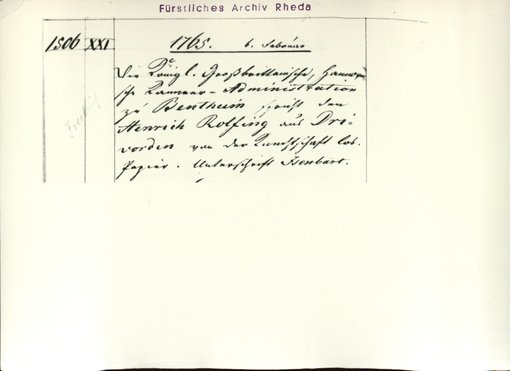 Fürstliches Archiv Rheda
1506 XXI 1765. 6. Februar
Die Königl. Großbrittanische, Hannöv
sche Kammer-Administration
zu Bentheim spricht den
Henrich Rolfing aus Drie-
vorden von der Knechtschaft los.
Papier. Unterschrift Isenbart.